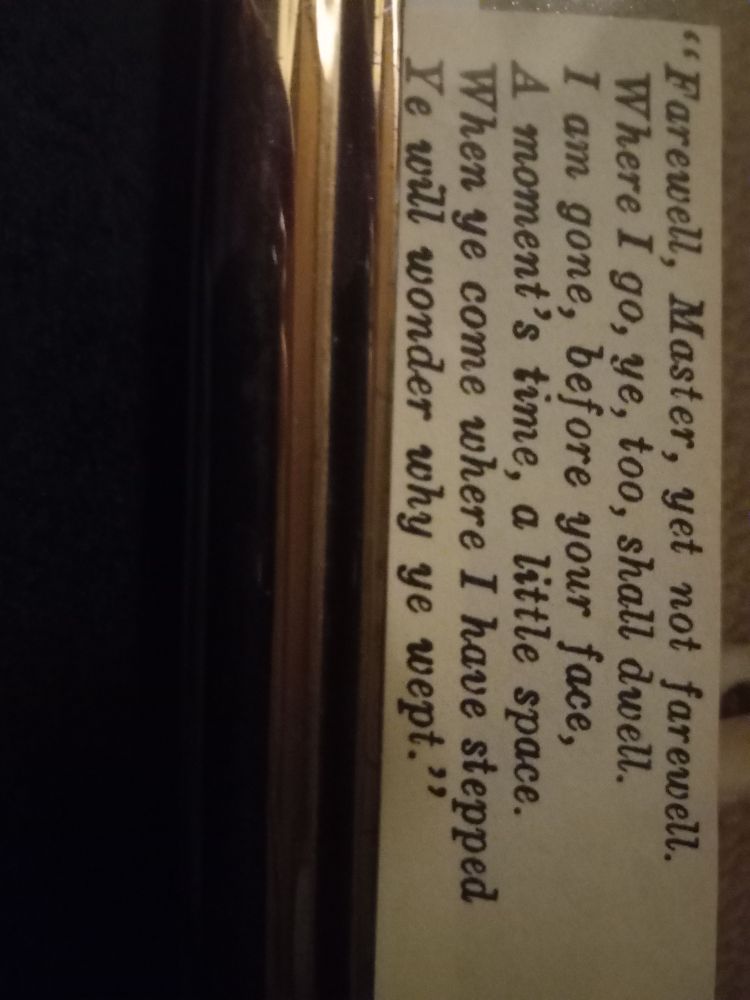 “Farewell, Master, yet not farewell.
Where I go, ye, too, shall dwell.
I am gone, before your face,
A moment’s time, a little space.
When ye come where I have stepped
Ye will wonder why ye wept.”